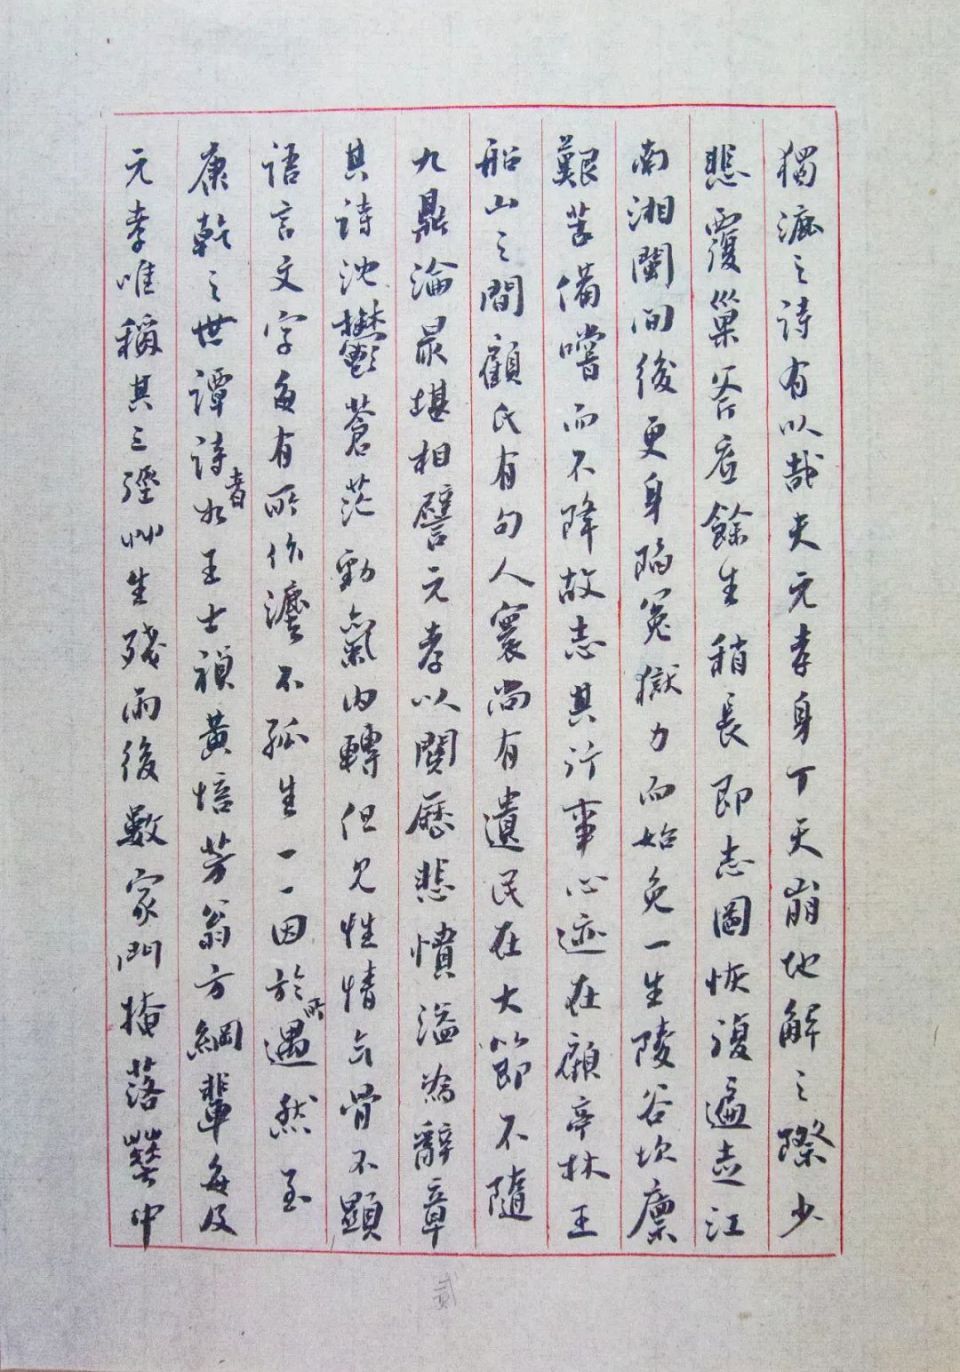 獨漉之詩有以哉夫元孝身丁天崩地解之際少
悲覆巢餘生稍長即志圖恢復遍走江
南湘閩間後更身陷冤獄力而始免一生陵谷坎廩
艱苦備嚐而不降故志其行事心迹在顧亭林王
船山之間顧氏有句人寰尚有遺民在大節不隨
九鼎淪最堪相譬元孝以閱歷悲憤溢為辭章
其詩沈鬱蒼茫勁氣內轉但見性情气骨不顯
語言文字每有所作灋不孤生一一因於所遇然至
康乾之世譚詩者如王士禎黃培芳翁方綱輩每及
元孝唯稱其三徑艸生殘雨後數家門掩落葉中
貳